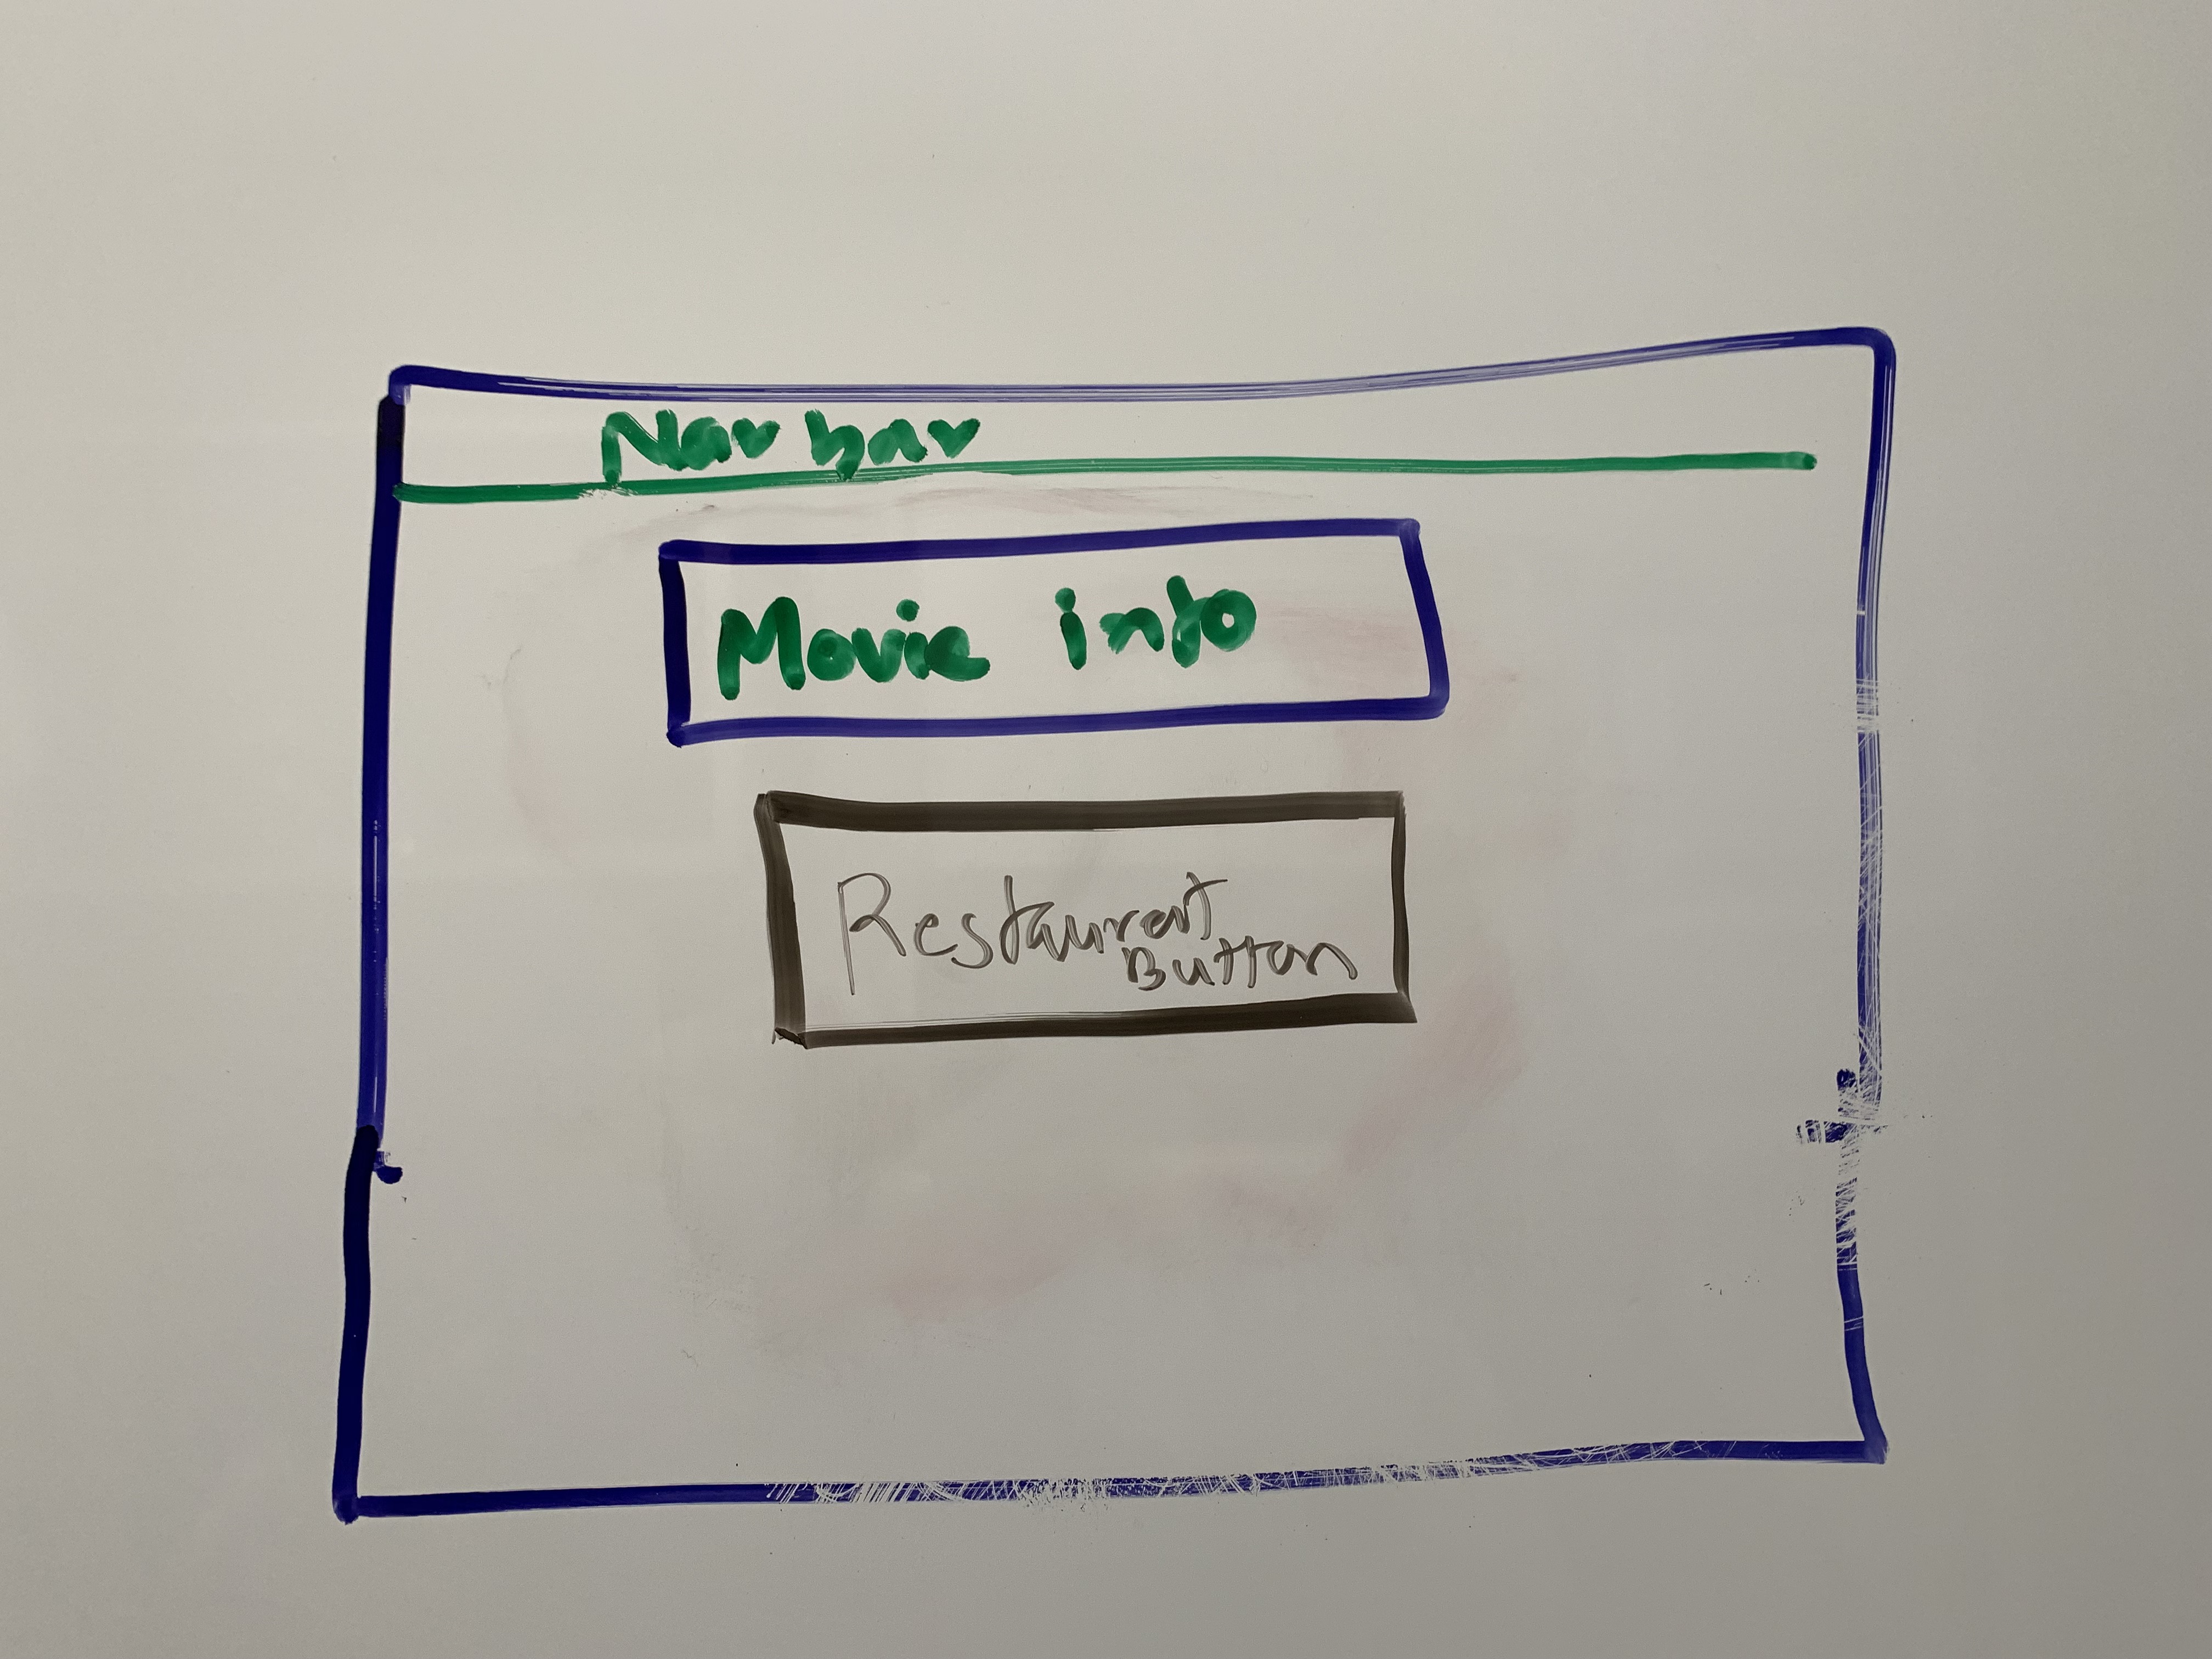 Nav bar
Movie info
Restaurant
Button